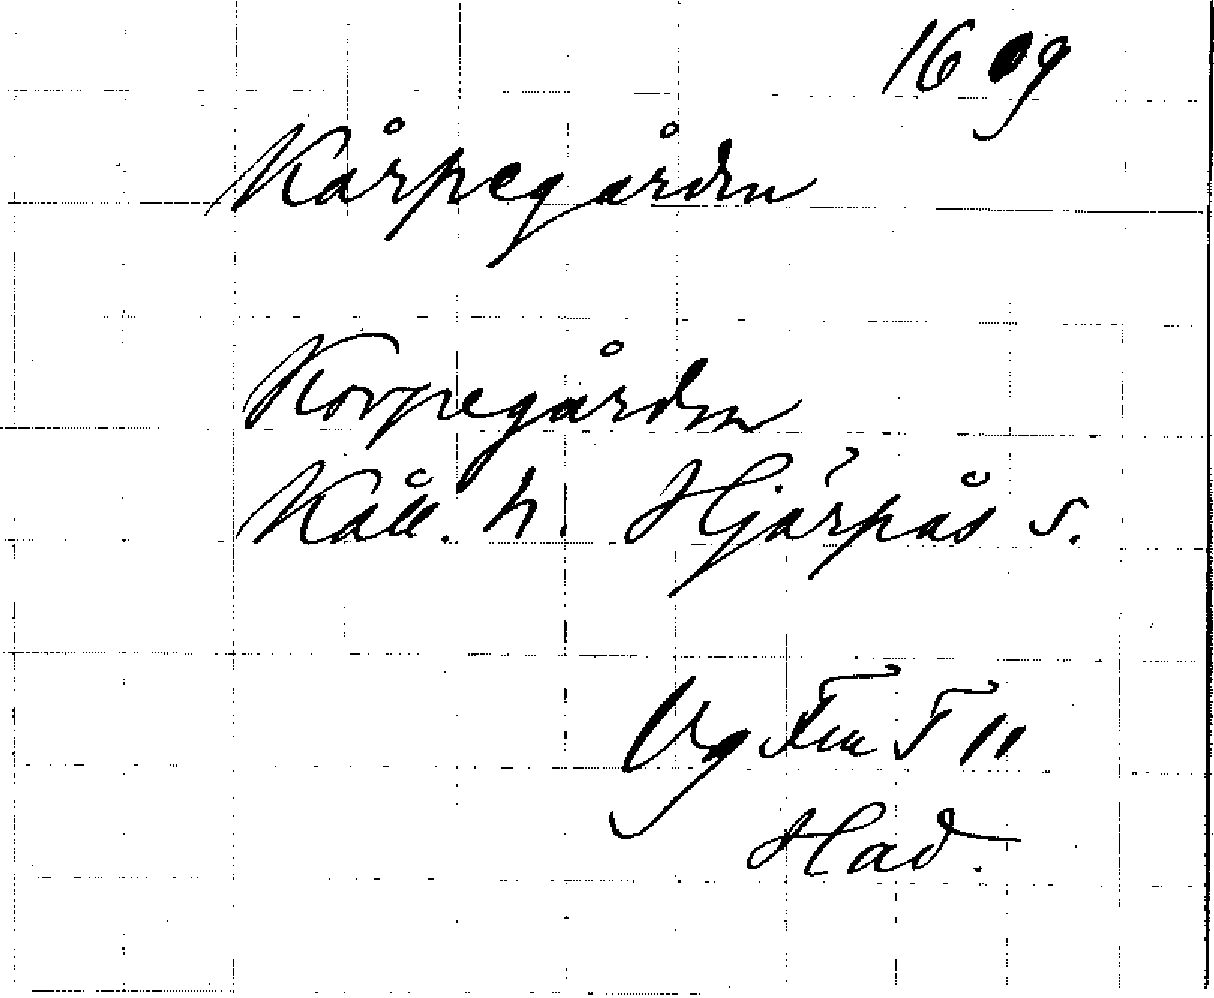 1609
Kårpegården
Korpegården
Kåll. h. Hjärpås s.
Vg Fru T 11
Had.